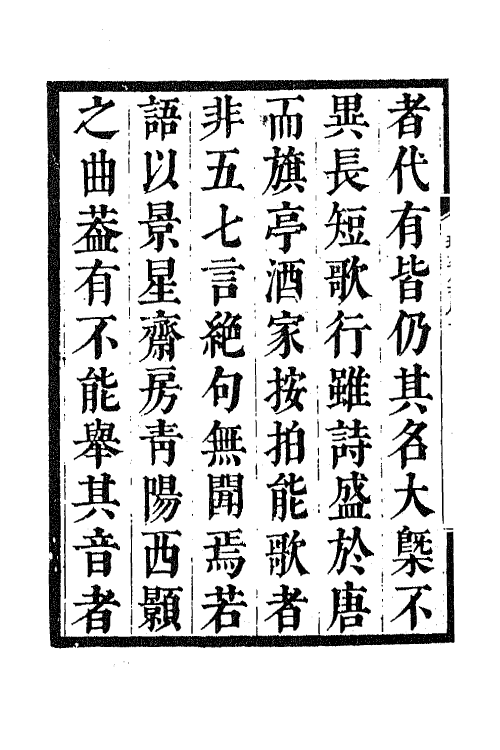 者代有皆仍其名大槩不
異長短歌行雖詩盛於唐
而旗亭酒家按拍能歌者
非五七言絕句無聞焉若
語以景星齋房青陽西顥
之曲葢有不能舉其音者